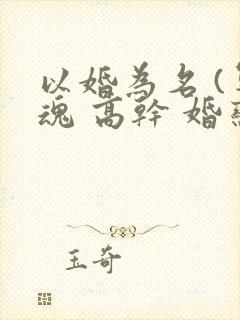 以婚為名 (
魂 高幹 婚
玉奇